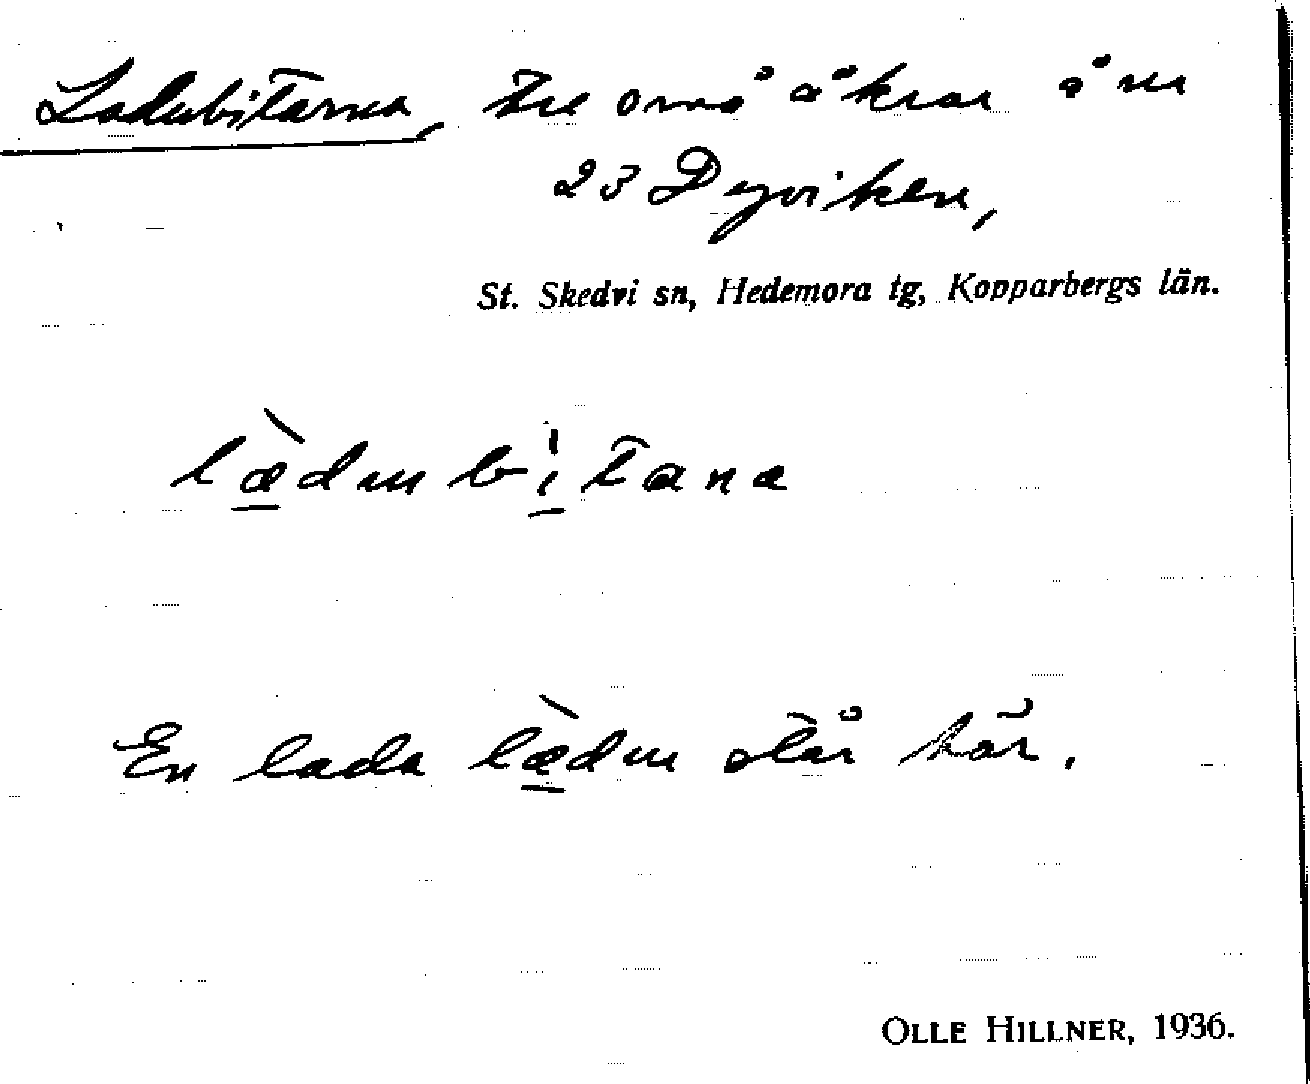 Ladubitarna, tre små åkrar å nr
23 Dyviken,
St. Skedvi sn, Hedemora tg, Kopparbergs län.
làdu bìtana
En lada làdu står här.
OLLE HILLNER, 1936.